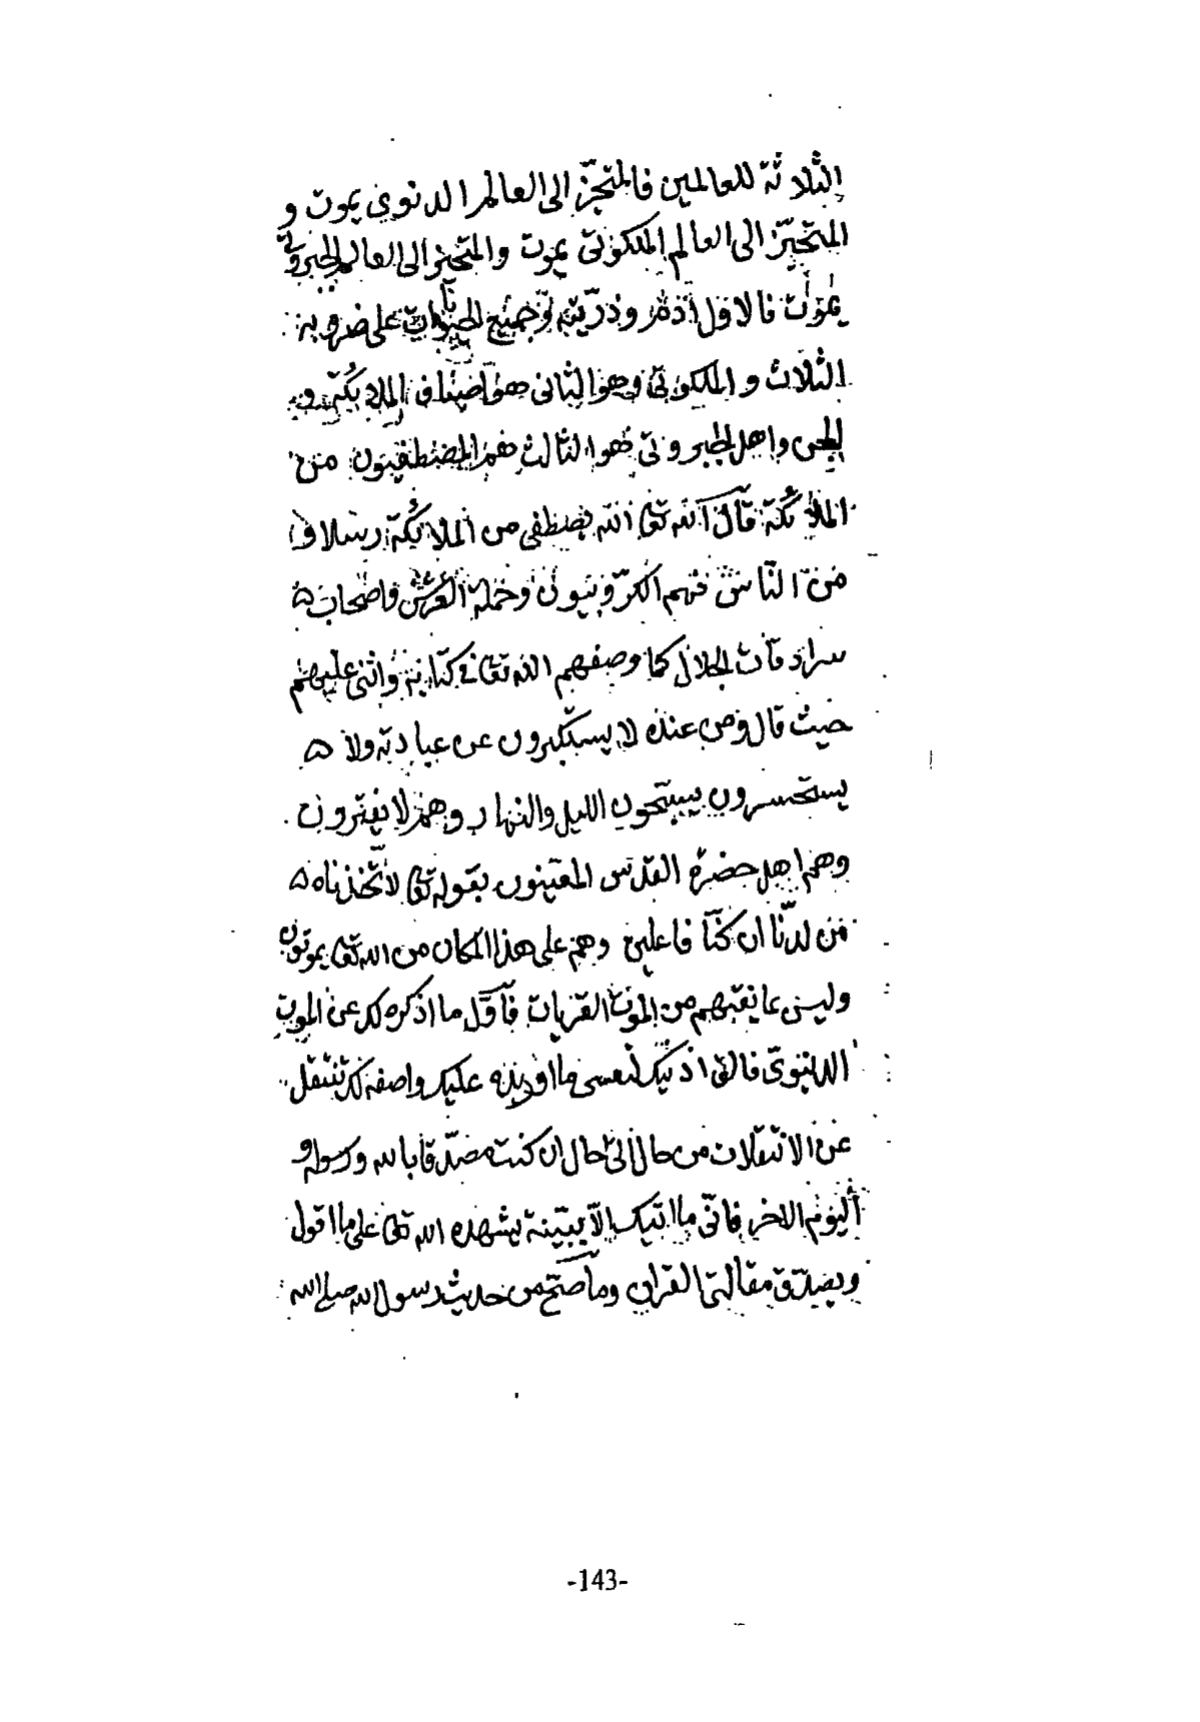 الثلاثة للعالمين فالمتحيّز الى العالم الدنوى يموت و
المتحيّز الى العالم الملكوتىّ يموت والمتحيز الى العالم الجبروتىّ
يموت فالاول آدم وذرّيته وجميع الحيوانات على ضروبه
الثلاث والملكوتىّ وهو الثانى هو اصناف الملائكة و
الجن واهل الجبروتىّ فهو الثالث هم المصطفيون من
الملائكة قال الله تعالى الله يصطفى من الملائكة رسلا و
من الناس فهم الكرّوبيون وحملة العرش واصحاب
سرادقات الجلال كما وصفهم الله تعالى فى كتابه واثنى عليهم
حيث قال ومن عنده لا يستكبرون عن عبادته ولا
يستحسرون يسبّحون الليل والنهار وهم لا يفترون
وهم اهل حضرة القدس المعيّنون بقوله تعالى لاتّخذناه
من لدنّا ان كنّا فاعلين وهم على هذا المكان من الله تعالى يموتون
وليس عانعتهم من الموت القربات فأوّل ما اذكره لك عن الموت
الدنيوىّ فالق اذنيك لتعى ما اورده عليك واصفه لك تنتقل
عن الانتقلات من حال الى حال ان كنت مصدّقا بالله ورسوله و
اليوم الاخر فانّى ما اتيك الاّ ببيّنة يشهده الله تعالى على ما اقول
ويصدّق مقالتى القران وما صحّ من حديث رسول الله صلى الله
-143-